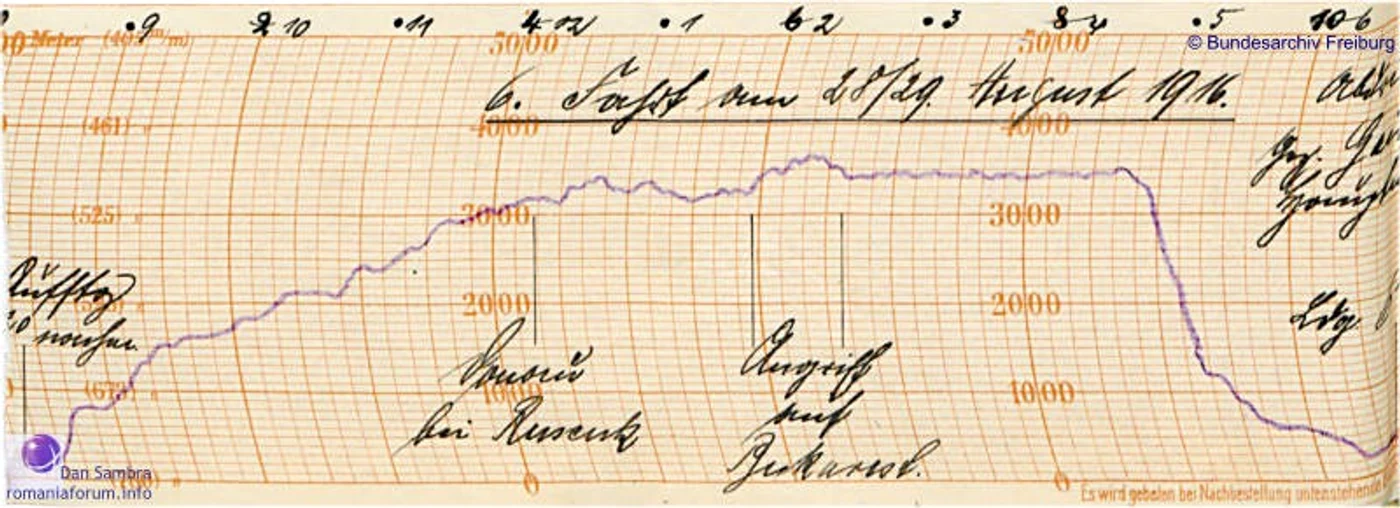 9 10 11 12 1 2 3 4 5 6
Meter 5000 5000
© Bundesarchiv Freiburg
6. Fahrt am 28/29. August 1916.
(461) 4000 4000
(525) 3000 3000
Aufstieg
2000 2000
nachm.
Ldg.
Donau
Angriff
(673) 1000 1000
bei Rusczuk
auf
Bukarest.
Dan Sambra
romaniaforum.info
0 0
Es wird gebeten bei Nachbestellung untenstehende